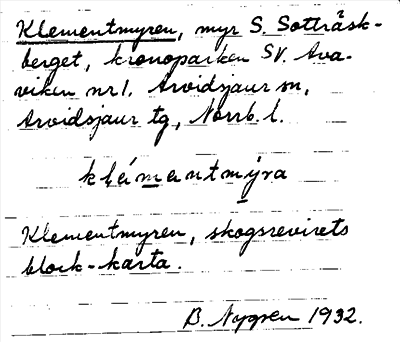 Klementmyren, myr S. Sotträsk-
berget, kronoparken SV. Ava-
viken nr 1. Arvidsjaur sn,
Arvidsjaur tg, Norrb. l.
klémantmýra
Klementmyren, skogsrevirets
block-karta.
B. Nygren 1932.